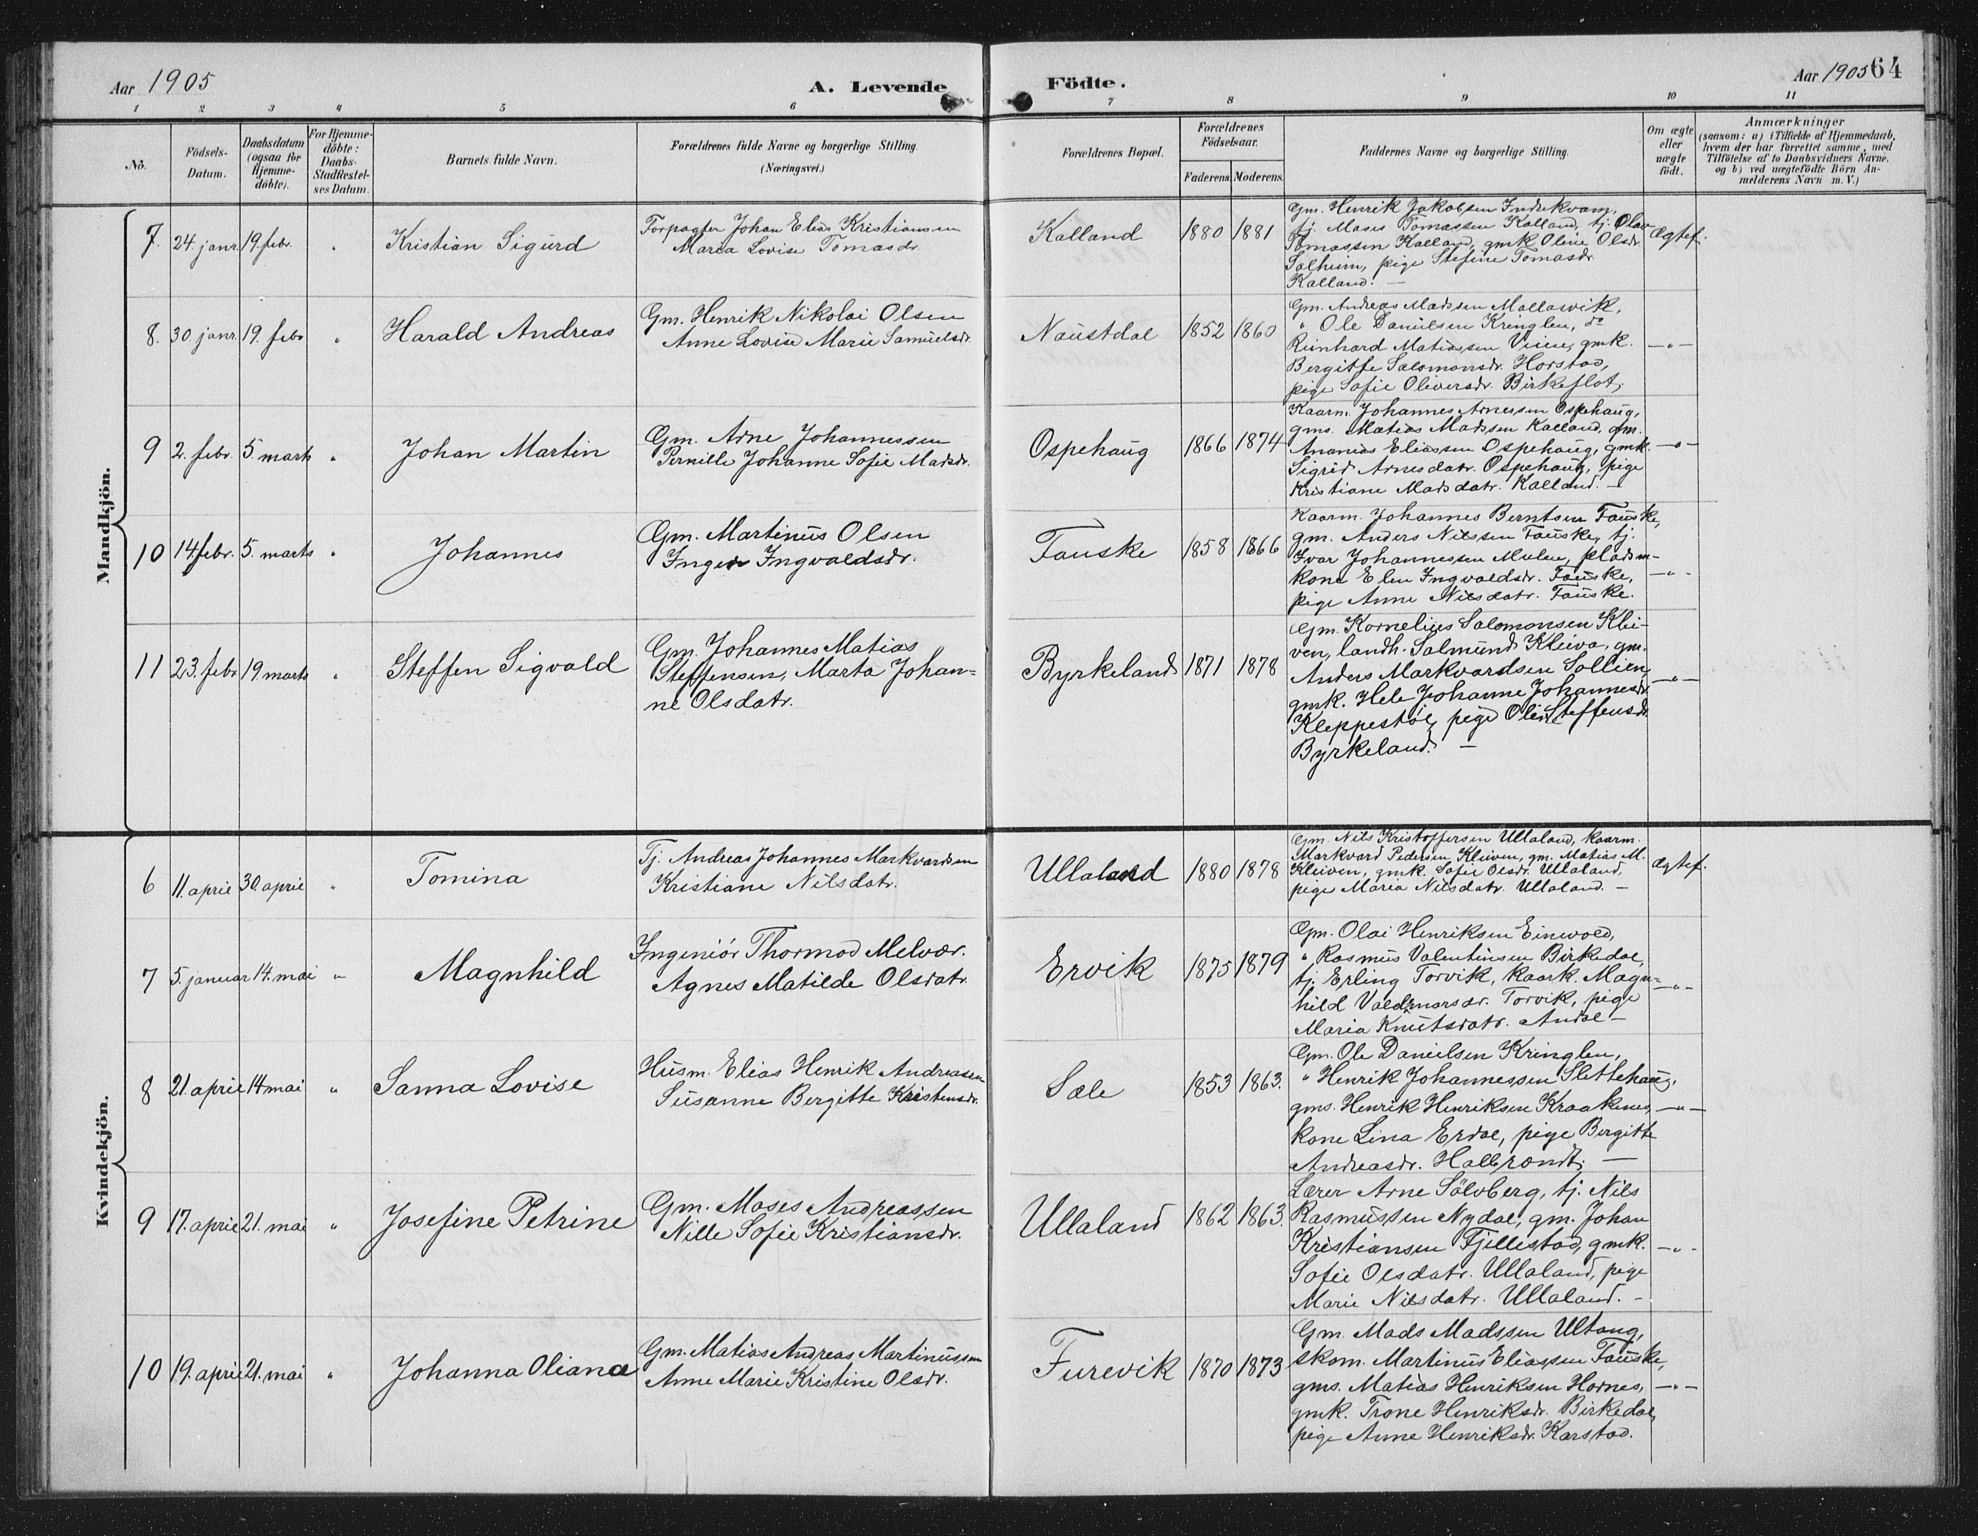 Aar 1905
A. Levende
Födte.
Aar 1905 64
1 2 3 4 5 6 7 8 9 10 11
No.
Födsels-
Datum.
Daabsdatum
(ogsaa för
Hjemme-
döbte).
For Hjemme-
döbte:
Daabs-
Stadfæstel-
ses Datum.
Barnets fulde Navn.
Forældrenes fulde Navne og borgerlige Stilling.
(Næringsvei.)
Forældrenes Bopæl.
Forældrenes
Födselsaar.
Faderens. Moderens.
Faddernes Navne og borgerlige Stilling.
Om ægte
eller
uægte
födt.
Anmærkninger
(saasom: a) i Tilfælde af Hjemmedaab,
hvem der har forrettet samme, med
Tilföielse af to Daabsvidners Navne,
og b) ved uægtefödte Börn An-
melderens Navn m. V.)
Mandkjön.
7. 24 janr. 19 febr. " Kristian Sigurd
Forpagter Johan Elias Kristiansen
Maria Lovise Tomasdr.
Kalland 1880 1881
Gm. Henrik Jakobsen Indrekvam,
tj. Moses Tomassen Kalland, tj. Olav
Tomassen Kalland, gmk Oline Olsdr.
Solheim, pige Stefine Tomasdr.
Kalland. —
Ægtef.
8. 30 janr. 19. febr " Harald Andreas
Gm. Henrik Nikolai Olsen
Anne Lovise Marie Samuelsdr.
Naustdal 1852 1860
Gm. Andreas Madssen Mallasvik,
" Ole Danielsen Kringlen, do
Reinhard Matiassen Vien, gmk.
Bergitte Salomonsdr. Horstad,
pige Sofie Oliversdr. Birkeflot,
—"—
9 2. febr. 5 marts " Johan Martin
Gm. Arne Johannessen
Pernille Johanne Sofie Madsdr.
Ospehaug 1866 1874
Kaarm. Johannes Arnessen Ospehaug,
gms. Matias Madssen Kalland, gm.
Ananias Eliassen Ospehaug, gmk.
Sigrid Arnesdatr. Ospehaug, pige
Kristiane Madsdatr. Kalland. —
—"—
10 14 febr. 5. marts " Johannes
Gm. Martinus Olsen
Inger Ingvaldsdr.
Fauske 1858 1866
Kaarm. Johannes Berntsen Fauske,
gm. Anders Nilssen Fauske, tj.
Ivar Johannessen Mulen, pladsm-
kone Elen Ingvaldsdr. Fauske,
pige Anne Nilsdatr. Fauske.
—"—
11 23. febr 19 marts " Steffen Sigvald
Gm. Johannes Matias
Steffensen, Marta Johan-
ne Olsdatr.
Byrkeland 1871 1878
Gm. Kornelius Salomonsen Klei-
ven, landh. Salmund Kleiva, gm.
Anders Markvardsen Sollien,
gmk. Hele Johanne Johannesdr.
Kleppestøl, pige Oline Steffensdr.
Byrkeland. —
—"—
Kvindekjön.
6 11. april 30. april " Tomina
Tj. Andreas Johannes Markvardsen
Kristiane Nilsdatr.
Ullaland 1880 1878
Gm. Nils Kristoffersen Ullaland, kaarm.
Markvard Pedersen Kleiven, gm. Matias M.
Kleiven, gmk. Sofie Olsdr. Ullaland,
pige Maria Nilsdatr. Ullaland. —
Ægtef.
7 5. januar 14. mai " Magnhild
Ingeniör Thormod Melvær.
Agnes Matilde Olsdatr
Ervik 1875 1879
Gm. Olai Henriksen Einevold,
" Rasmus Valentinsen Birkedal,
tj. Erling Torvik, kaark. Magn-
hild Valdemarsdr. Torvik, pige
Maria Knutsdatr. Andal —
—"—
8 21. april 14 mai " Sanna Lovise
Husm. Elias Henrik Andreasen
Susanne Bergitte Kristensdr.
Sæle 1853 1863.
Gm. Ole Danielsen Kringlen,
" Henrik Johannessen Slettehaug,
gms. Henrik Henriksen Kraakenes,
kone Lina Erdal, pige Bergitte
Andreasdr. Halbrændt. —
—"—
9 17. april 21. mai " Josefine Petrine
Gm. Moses Andreassen
Nille Sofie Kristiansdr.
Ullaland 1862 1863.
Lærer Arne Sölvberg, tj. Nils
Rasmussen Nydal, gm. Johan
Kristiansen Fjellestad, gmk.
Sofie Olsdatr. Ullaland, pige
Marie Nilsdatr. Ullaland. —
—"—
10 19. april 21. mai " Johanna Oliana
Gm. Matias Andreas Martinussen
Anne Marie Kristine Olsdr.
Furevik 1870 1873
Gm. Mads Madssen Ultang,
skom. Martinus Eliassen Fauske,
gms. Matias Henriksen Hornes,
gmk. Trone Henriksdr. Birkedal,
pige Anne Henriksdr. Karstad.
—"—